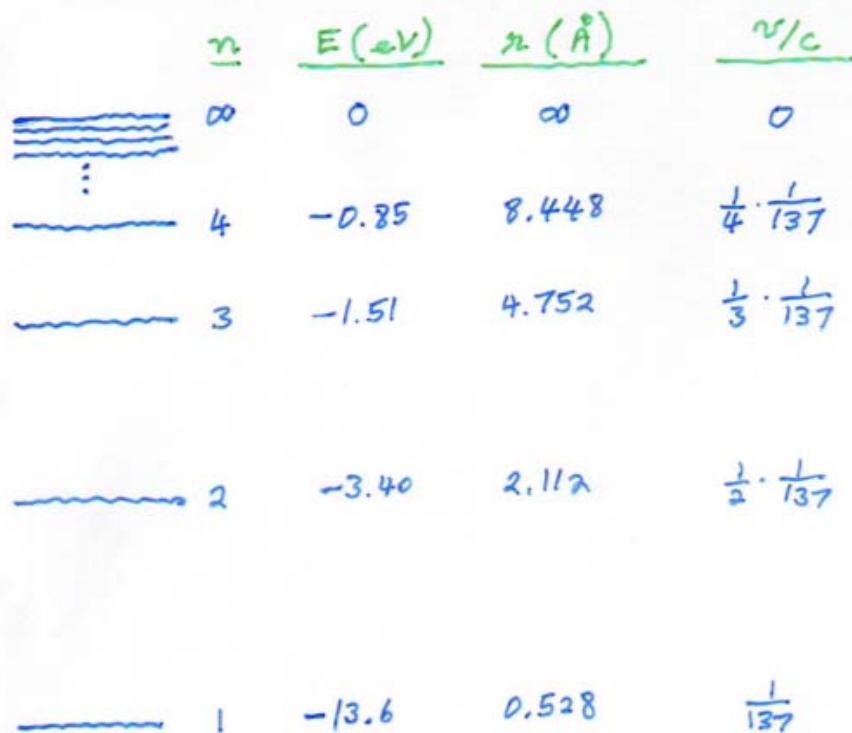 n E (eV) r (Å) v/c
∞ 0 ∞ 0
⋮
4 -0.85 8.448 1/4 · 1/137
3 -1.51 4.752 1/3 · 1/137
2 -3.40 2.112 1/2 · 1/137
1 -13.6 0.528 1/137